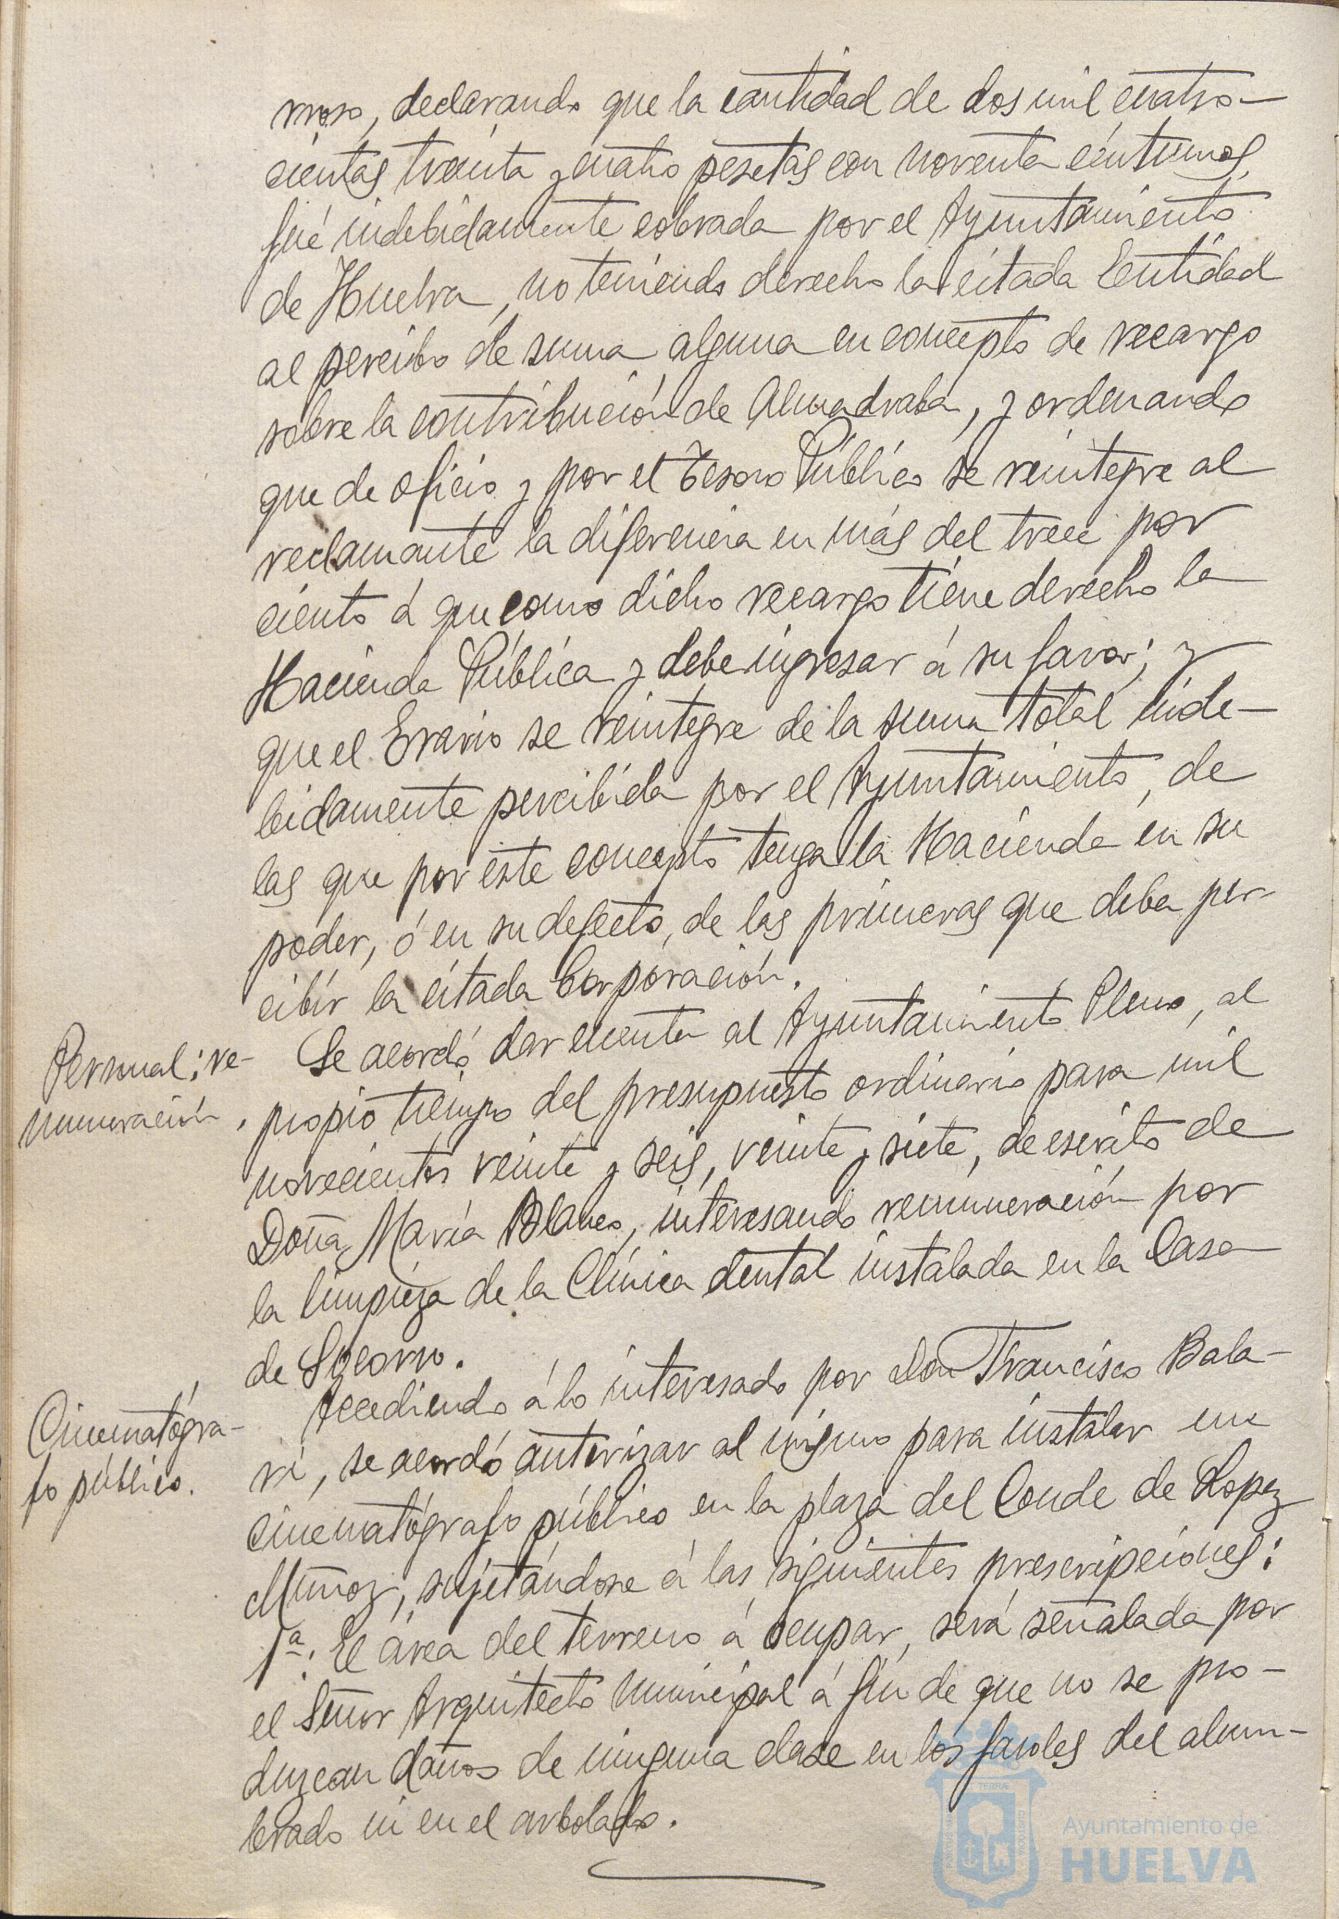 moso, declarando que la cantidad de dos mil cuatro-
cientas treinta y cuatro pesetas con noventa céntimos,
fué indebidamente cobrada por el Ayuntamiento
de Huelva, no teniendo derecho la citada Entidad
al percibo de suma alguna en concepto de recargo
sobre la contribución de Almadraba, y ordenando
que de oficio y por el Tesoro Público se reintegre al
reclamante la diferencia en más del trece por
ciento á que como dicho recargo tiene derecho la
Hacienda Pública y debe ingresar á su favor; y
que el Erario se reintegre de la suma total inde-
bidamente percibida por el Ayuntamiento, de
las que por este concepto tenga la Hacienda en su
poder, ó en su defecto, de las primeras que deba per-
cibir la citada Corporación.
Personal: re-
muneración.
Se acordó dar cuenta al Ayuntamiento Pleno, al
propio tiempo del presupuesto ordinario para mil
novecientos veinte y seis, veinte y siete, de escrito de
Doña María Blanco, interesando remuneración por
la limpieza de la Clínica dental instalada en la Casa
de Socorro.
Cinematógra-
fo público.
Accediendo á lo interesado por Don Francisco Bala-
ri, se acordó autorizar al mismo para instalar un
cinematógrafo público en la plaza del Conde de Lopez
Muñoz, sujetándose á las siguientes prescripciones:
1ª. El área del terreno á ocupar, será señalada por
el Señor Arquitecto Municipal á fin de que no se pro-
duzcan daños de ninguna clase en los faroles del alum-
brado ni en el arbolado.
Ayuntamiento de
HUELVA